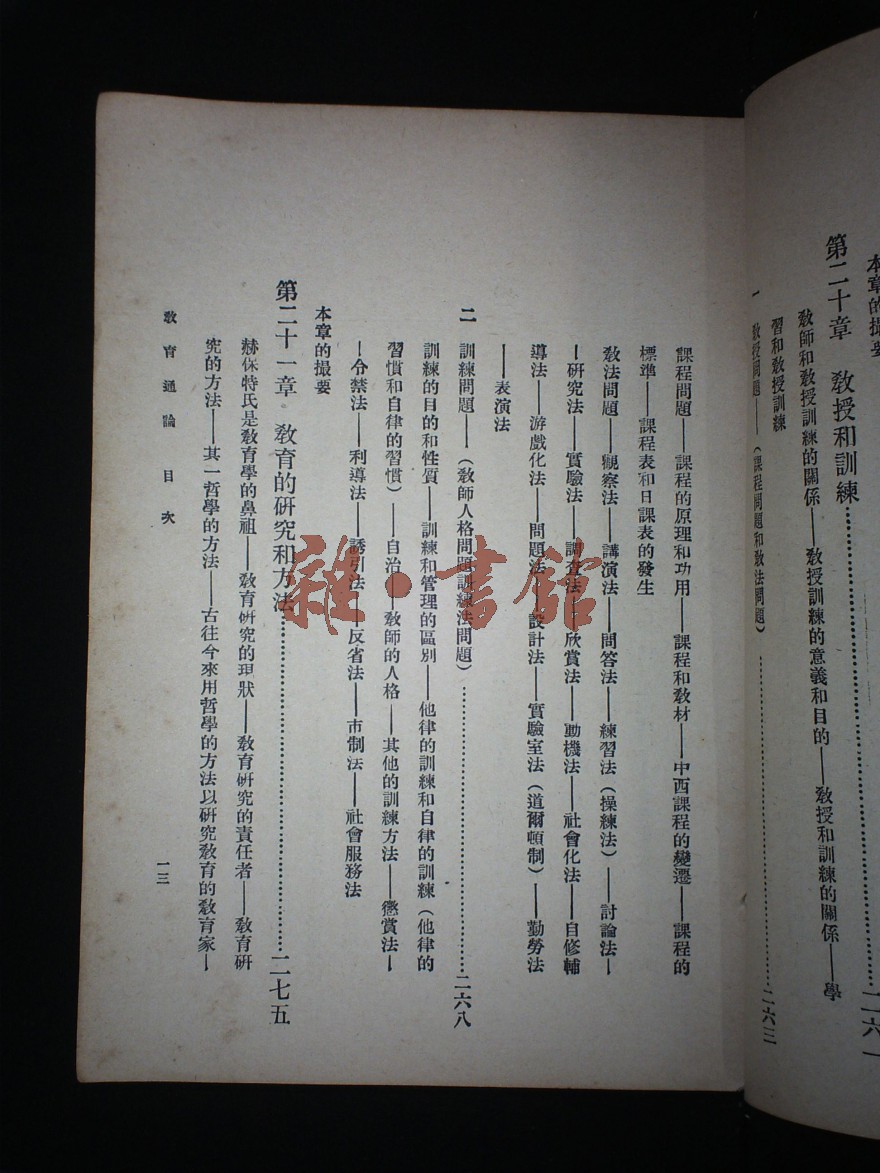 本章的撮要
第二十章　敎授和訓練……………………二六一
敎師和敎授訓練的關係——敎授訓練的意義和目的——敎授和訓練的關係——學
習和敎授訓練
一　敎授問題——（課程問題和敎法問題）……………………二六三
課程問題——課程的原理和功用——課程和敎材——中西課程的變遷——課程的
標準——課程表和日課表的發生
敎法問題——觀察法——講演法——問答法——練習法（操練法）——討論法—
—研究法——實驗法——調查法——欣賞法——動機法——社會化法——自修輔
導法——游戲化法——問題法——設計法——實驗室法（道爾頓制）——勤勞法
——表演法
二　訓練問題——（敎師人格問題訓練法問題）……………………二六八
訓練的目的和性質——訓練和管理的區別——他律的訓練和自律的訓練（他律的
習慣和自律的習慣）——自治——敎師的人格——其他的訓練方法——懲賞法—
—令禁法——利導法——誘引法——反省法——市制法——社會服務法
本章的撮要
第二十一章　敎育的研究和方法……………………二七五
赫休特氏是敎育學的鼻祖——敎育研究的現狀——敎育研究的責任者——敎育研
究的方法——其一哲學的方法——古往今來用哲學的方法以研究敎育的敎育家—
敎育通論　目次
一三
雜·書館